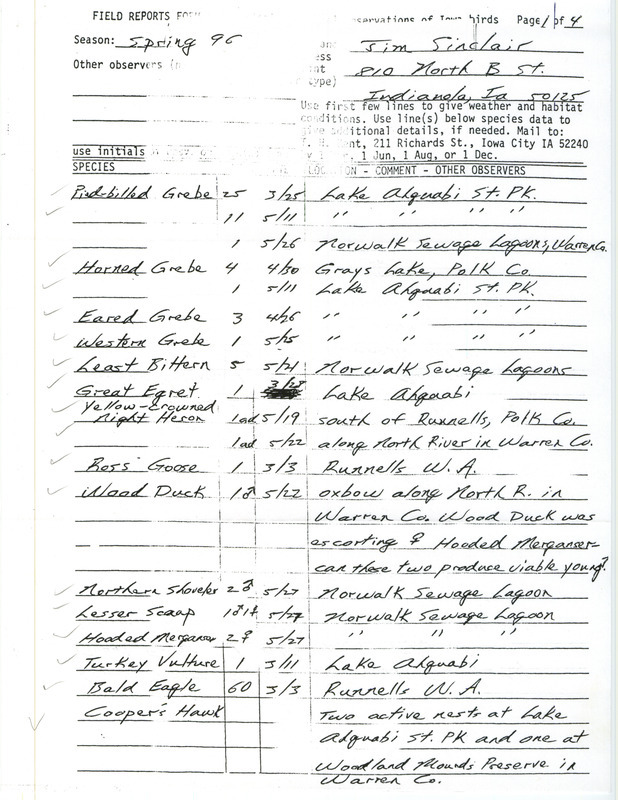 FIELD REPORTS FORM servations of Iowa birds Page 1 of 4
Season: Spring 96 Jim Sinclair
Other observers 810 North B St.
type) Indianola, Ia 50125
Use first few lines to give weather and habitat
conditions. Use line(s) below species data to
give additional details, if needed. Mail to:
T. H. Kent, 211 Richards St., Iowa City IA 52240
use initials 1 Jun, 1 Aug, or 1 Dec.
SPECIES LOCATION - COMMENT - OTHER OBSERVERS
Pied-billed Grebe 25 3/25 Lake Ahquabi St. PK.
11 5/11 " " " "
1 5/26 Norwalk Sewage Lagoons, Warren Co.
Horned Grebe 4 4/30 Grays Lake, Polk Co.
1 5/11 Lake Ahquabi St. PK.
Eared Grebe 3 4/26 " " " "
Western Grebe 1 5/15 " " " "
Least Bittern 5 5/21 Norwalk Sewage Lagoons
Great Egret 1 Lake Ahquabi
Yellow-crowned
Night Heron 1ad 5/19 south of Runnells, Polk Co.
1ad 5/22 along North River in Warren Co.
Ross' Goose 1 3/3 Runnells W. A.
Wood Duck 1♂ 5/22 oxbow along North R. in
Warren Co. Wood Duck was
escorting ♀ Hooded Merganser-
can these two produce viable young?
Northern Shoveler 2♂ 5/27 Norwalk Sewage Lagoon
Lesser Scaup 1♂1♀ 5/27 Norwalk Sewage Lagoon
Hooded Merganser 2♀ 5/27 " " "
Turkey Vulture 1 3/11 Lake Ahquabi
Bald Eagle 60 3/3 Runnells W. A.
Cooper's Hawk Two active nests at Lake
Ahquabi St. PK and one at
Woodland Mounds Preserve in
Warren Co.